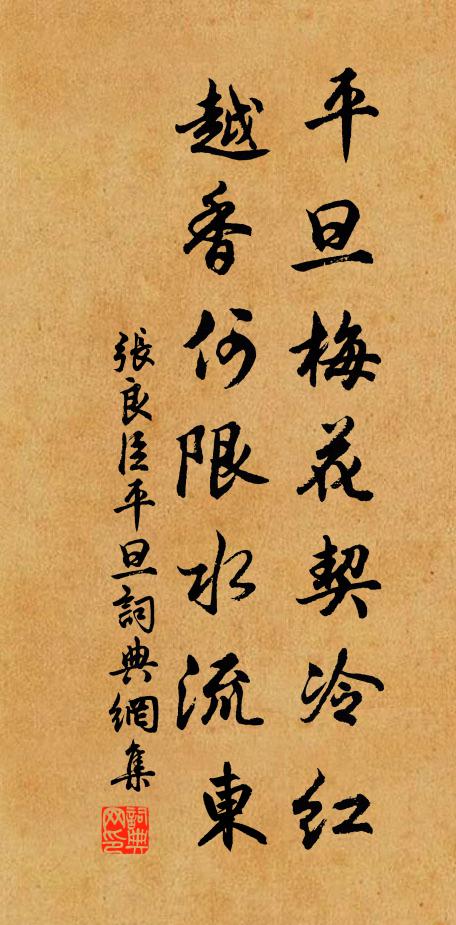 平旦梅花契冷紅
越香何限水流東
張良臣平旦詞典網集
詞典网印